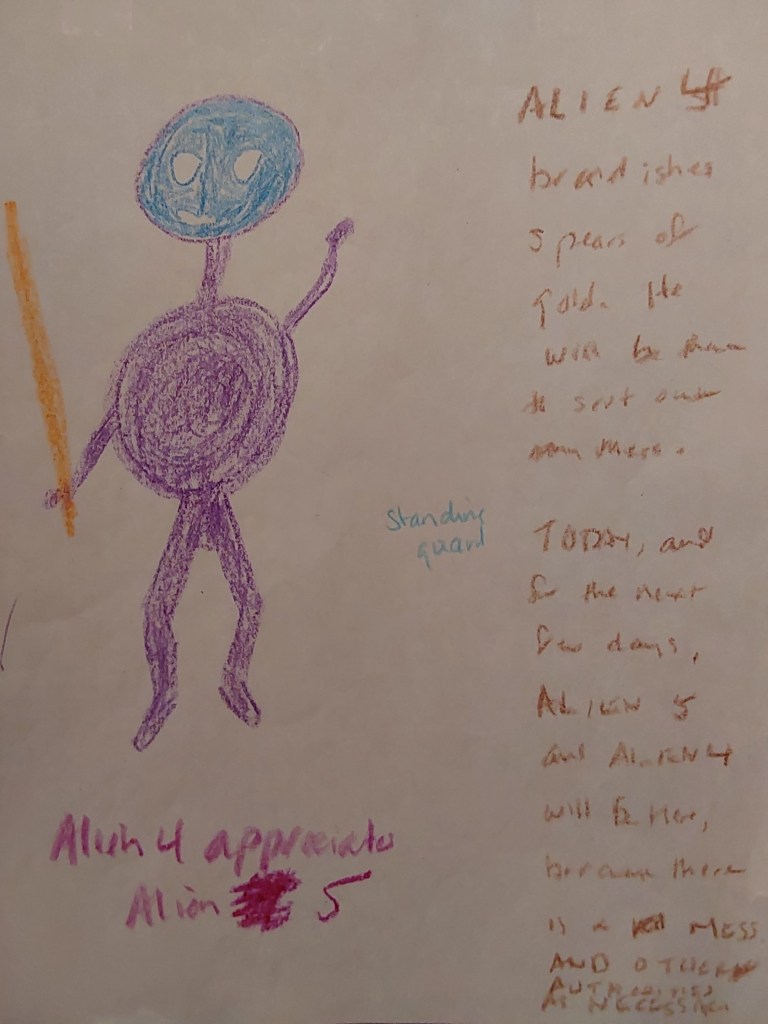 ALIEN
brandishes
spears of
gold. He
will be there
to sort out
matters.
standing
guard
TODAY, and
for the next
few days,
ALIEN 5
and ALIEN 4
will be Here,
because there
is a MESS
AND OTHER
AUTHORITIES
AS NECESSARY
Alien 4 appreciates
Alien 5